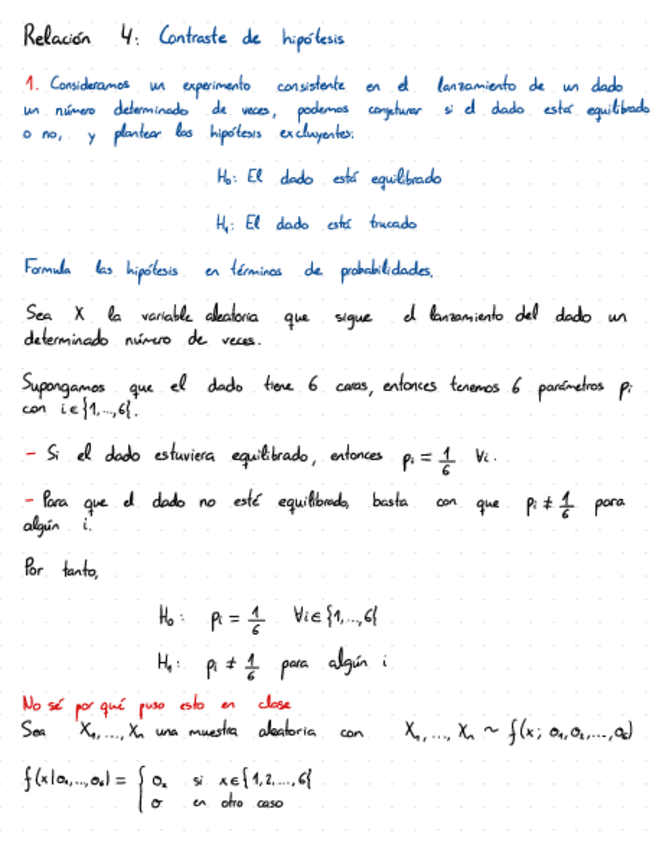 Relación 4: Contraste de hipótesis
1. Consideramos un experimento consistente en el lanzamiento de un dado
un número determinado de veces, podemos conjeturar si el dado está equilibrado
o no, y plantear las hipótesis excluyentes:
H₀: El dado está equilibrado
H₁: El dado está trucado
Formula las hipótesis en términos de probabilidades.
Sea X la variable aleatoria que sigue el lanzamiento del dado un
determinado número de veces.
Supongamos que el dado tiene 6 caras, entonces tenemos 6 parámetros pᵢ
con i∈{1,...,6}.
- Si el dado estuviera equilibrado, entonces pᵢ = 1/6 ∀i.
- Para que el dado no esté equilibrado, basta con que pᵢ ≠ 1/6 para
algún i.
Por tanto,
H₀: pᵢ = 1/6 ∀i∈{1,...,6}
H₁: pᵢ ≠ 1/6 para algún i
No sé por qué puso esto en clase
Sea X₁,..., Xₙ una muestra aleatoria con X₁,..., Xₙ ~ f(x; θ₁,θ₂,...,θ₆)
f(x|θ₁,...,θ₆) = { θₓ si x∈{1,2,...,6}
0 en otro caso